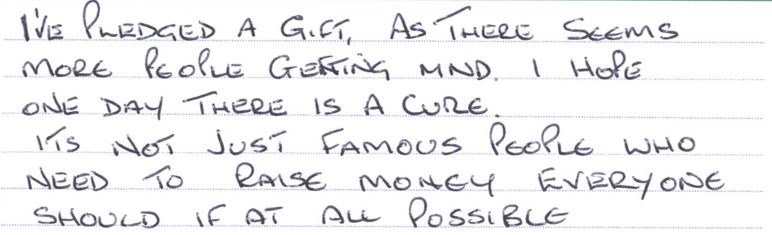 I'VE PLEDGED A GIFT, AS THERE SEEMS
MORE PEOPLE GETTING MND. I HOPE
ONE DAY THERE IS A CURE.
ITS NOT JUST FAMOUS PEOPLE WHO
NEED TO RAISE MONEY EVERYONE
SHOULD IF AT ALL POSSIBLE